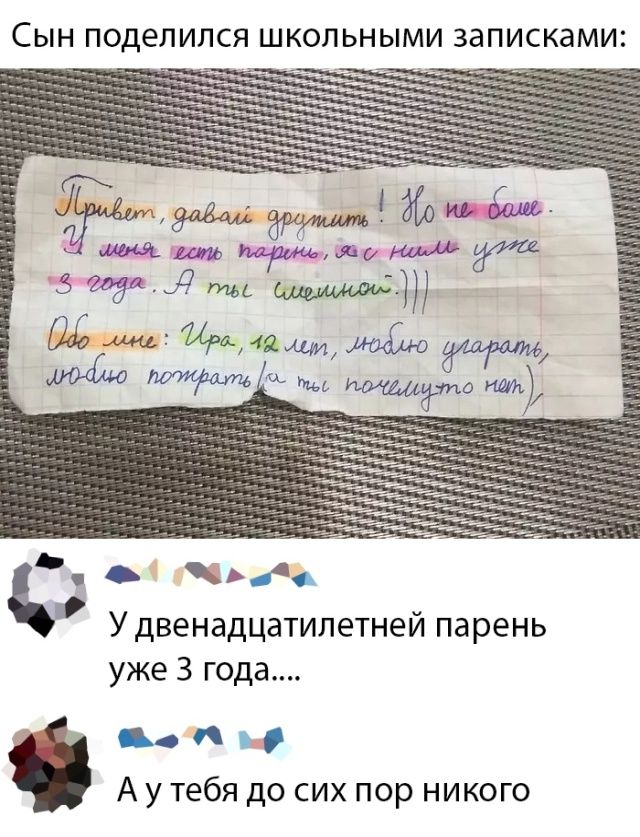 Сын поделился школьными записками:
Привет, давай дружить! Но не более.
У меня есть парень, я с ним уже
3 года. А ты смешной.)))
Обо мне: Ира, 12 лет, люблю угарать,
люблю пожрать (а ты почемуто нет),
У двенадцатилетней парень
уже 3 года....
А у тебя до сих пор никого